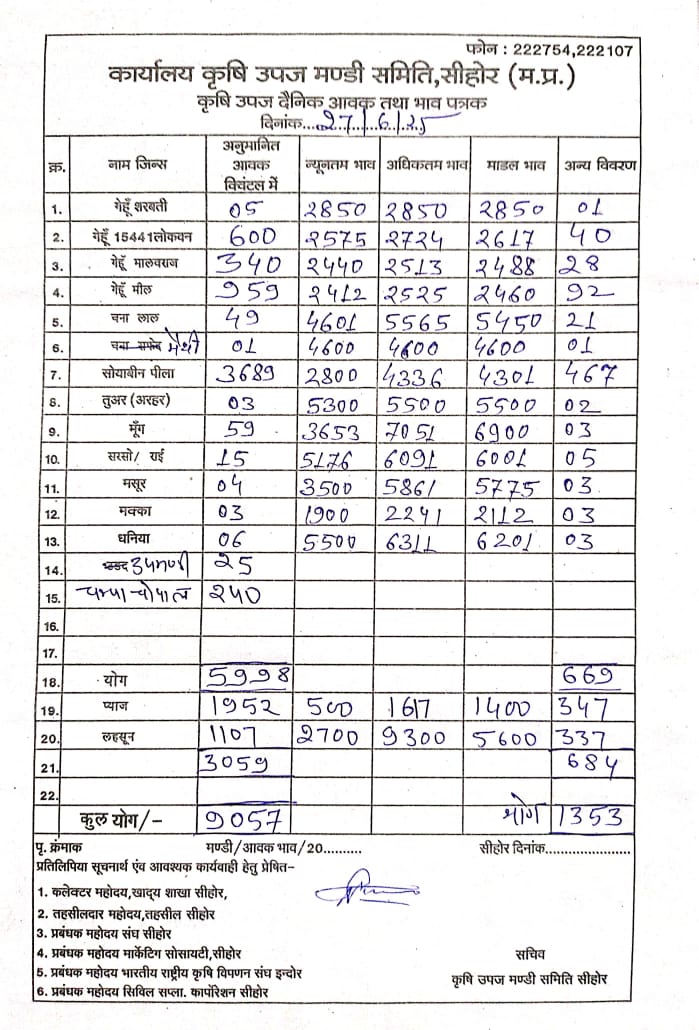 फोन : 222754,222107
कार्यालय कृषि उपज मण्डी समिति,सीहोर (म.प्र.)
कृषि उपज दैनिक आवक तथा भाव पत्रक
दिनांक...27/6/25
क्र. नाम जिन्स अनुमानित आवक क्विंटल में न्यूनतम भाव अधिकतम भाव माडल भाव अन्य विवरण
1. गेहूँ शरबती 05 2850 2850 2850 01
2. गेहूँ 15441लोकवन 600 2575 2724 2617 40
3. गेहूँ मालवराज 340 2440 2513 2488 28
4. गेहूँ मील 959 2412 2525 2460 92
5. चना लाल 49 4601 5565 5450 21
6. चना सफेद मैथी 01 4600 4600 4600 01
7. सोयाबीन पीला 3689 2800 4336 4301 467
8. तुअर (अरहर) 03 5300 5500 5500 02
9. मूँग 59 3653 7051 6900 03
10. सरसो/ राई 15 5176 6091 6001 05
11. मसूर 04 3500 5861 5775 03
12. मक्का 03 1900 2241 2112 03
13. धनिया 06 5500 6311 6201 03
14. उपमण्डी 25
15. 240
16.
17.
18. योग 5998 669
19. प्याज 1952 500 1617 1400 347
20. लहसून 1107 2700 9300 5600 337
21. 3059 684
22.
कुल योग/- 9057 योग 1353
पृ. क्रंमाक मण्डी/आवक भाव/20.......... सीहोर दिनांक......................
प्रतिलिपिया सूचनार्थ एंव आवश्यक कार्यवाही हेतु प्रेषित-
1. कलेक्टर महोदय,खाद्य शाखा सीहोर,
2. तहसीलदार महोदय,तहसील सीहोर
3. प्रबंधक महोदय संघ सीहोर
4. प्रबंधक महोदय मार्केटिंग सोसायटी,सीहोर
सचिव
5. प्रबंधक महोदय भारतीय राष्ट्रीय कृषि विपणन संघ इन्दोर
कृषि उपज मण्डी समिति सीहोर
6. प्रबंधक महोदय सिविल सप्ला. कार्पोरेशन सीहोर